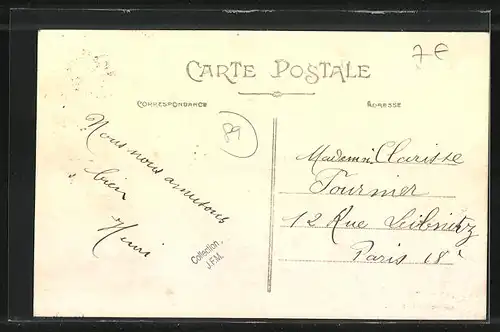 7€
CARTE POSTALE
CORRESPONDANCE
ADRESSE
89
Nous nous amusons
bien
Henri
Collection
J.F.M.
Mademle Clarisse
Fournier
12 Rue Leibnitz
Paris 18e